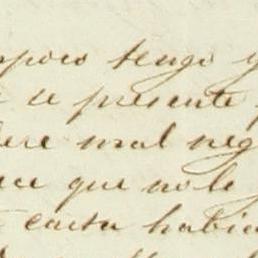 mpoco tengo y
se presente
ere mal neg
ce que no le
carta habia